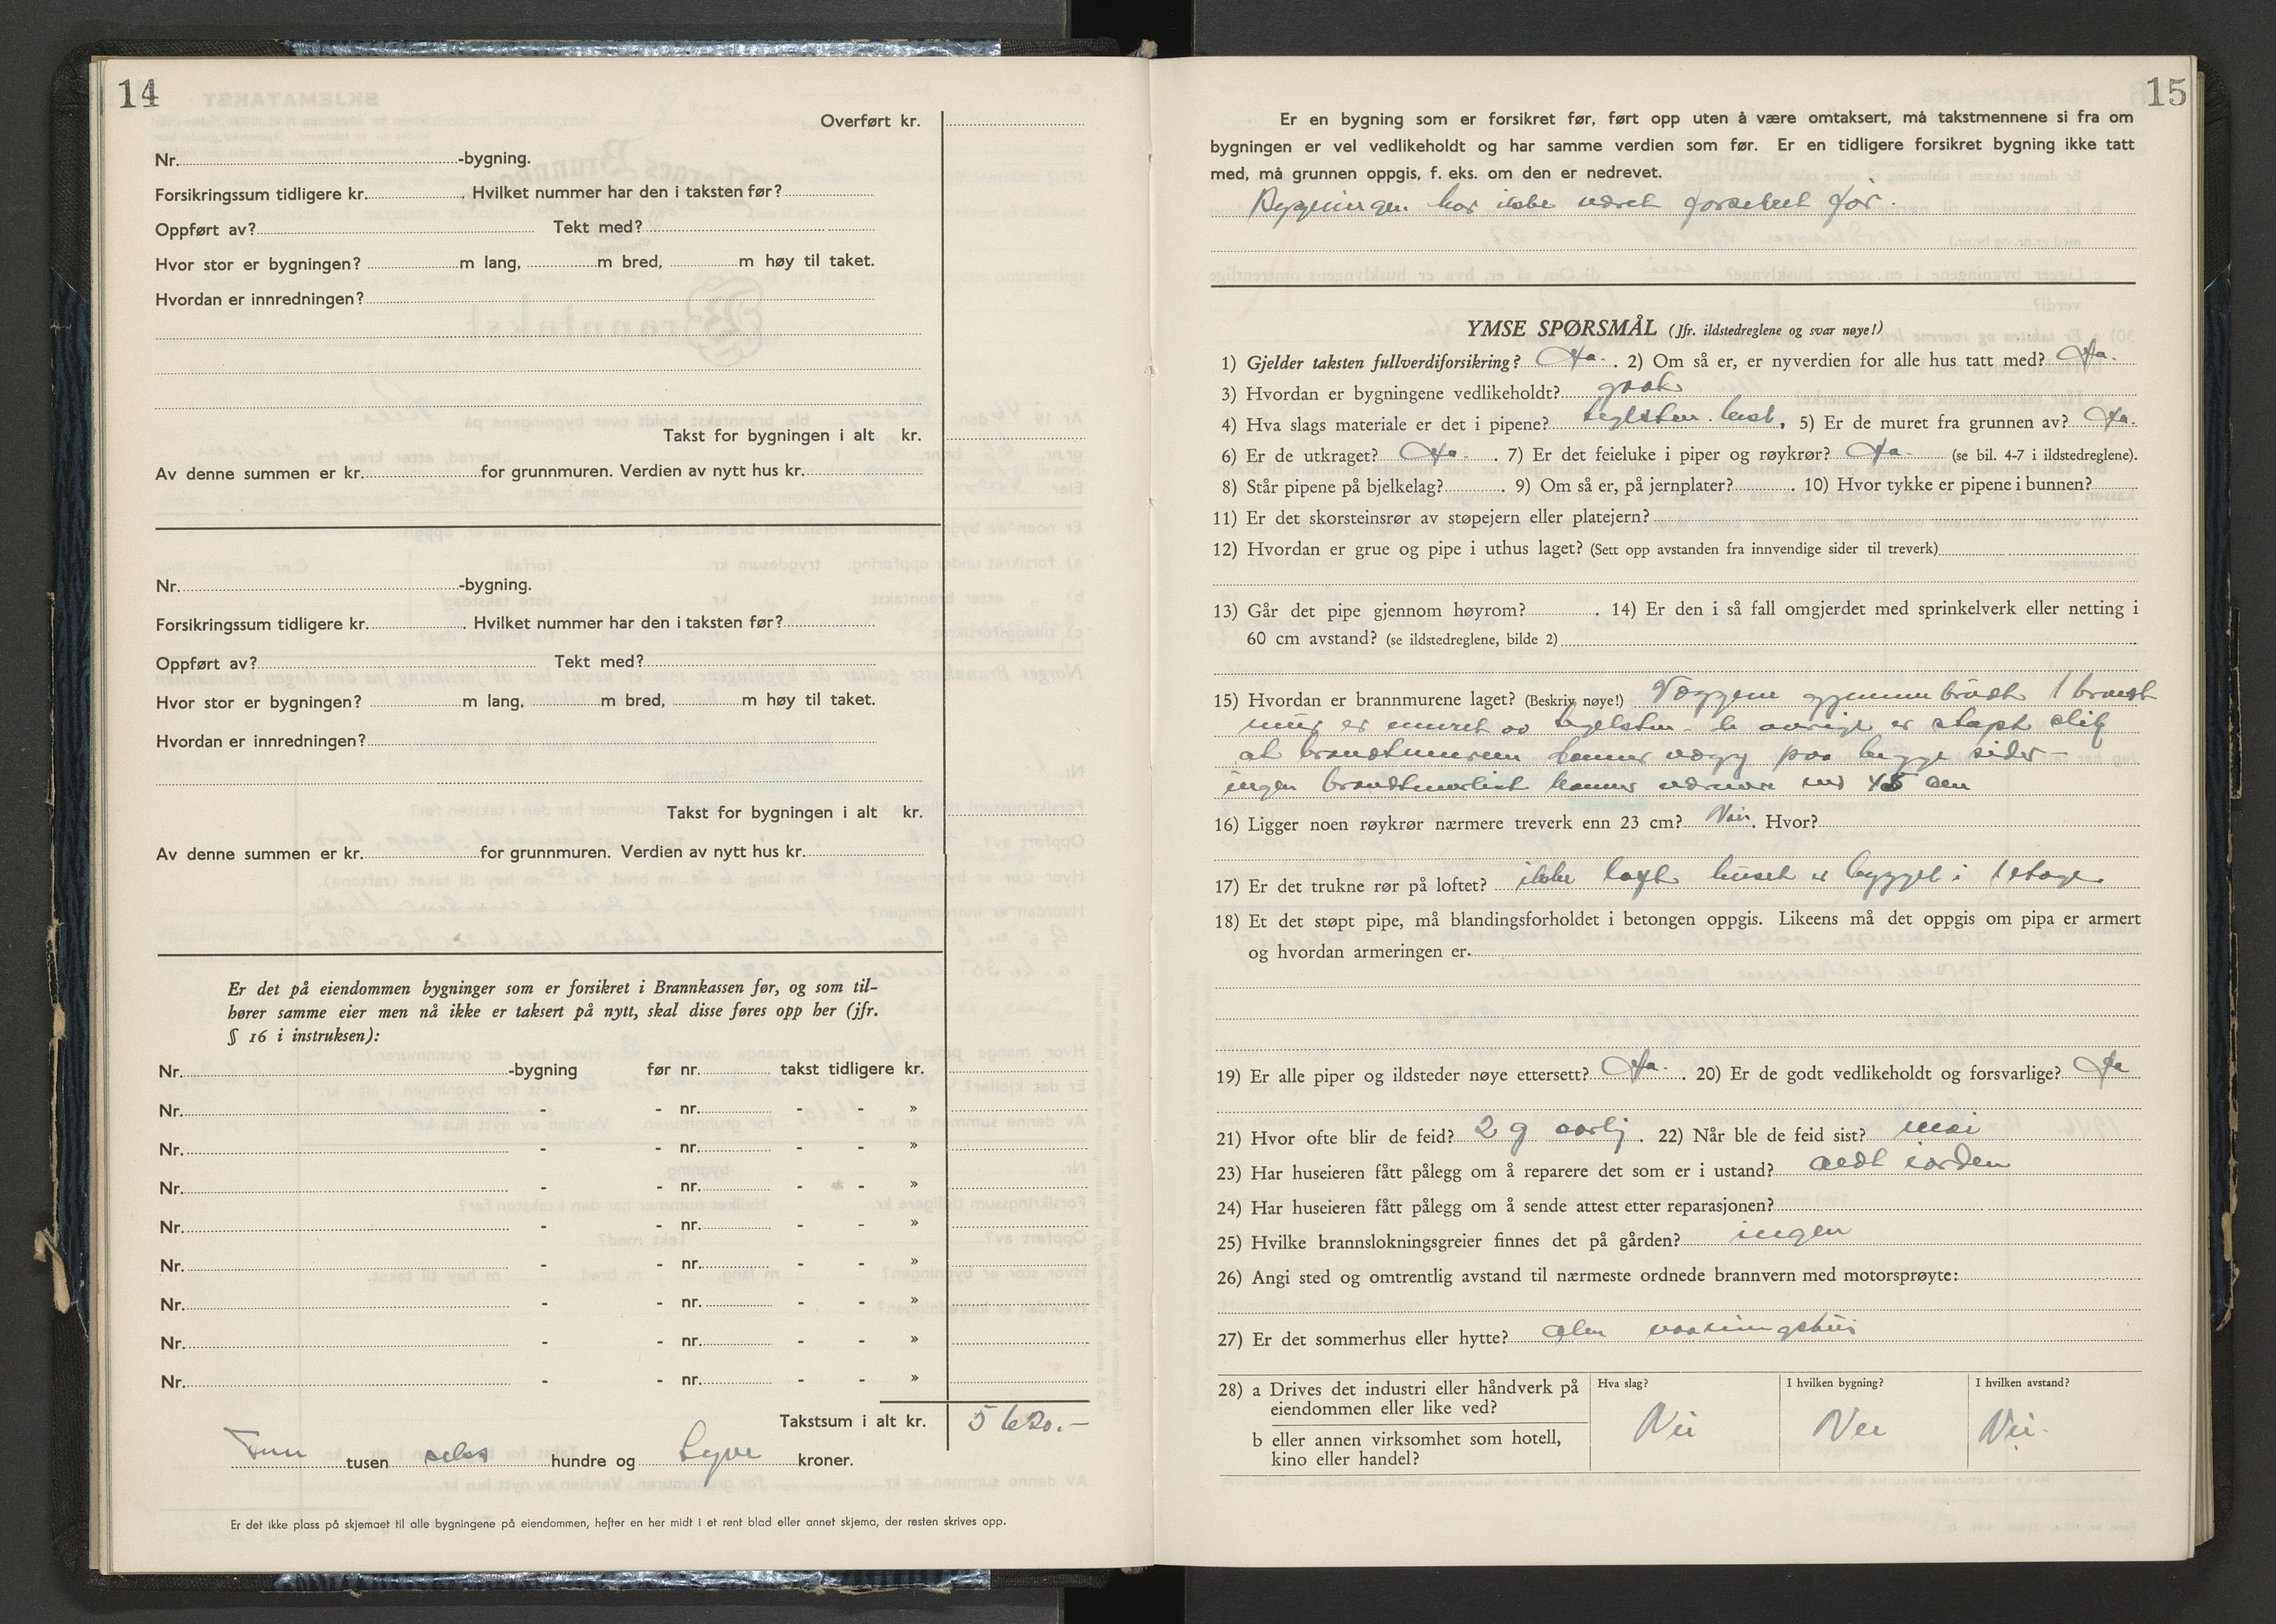 14
Overført kr.
Nr. -bygning.
Forsikringssum tidligere kr. . Hvilket nummer har den i taksten før?
Oppført av? Tekt med?
Hvor stor er bygningen? m lang, m bred, m høy til taket.
Hvordan er innredningen?
Takst for bygningen i alt kr.
Av denne summen er kr. for grunnmuren. Verdien av nytt hus kr.
Nr. -bygning.
Forsikringssum tidligere kr. . Hvilket nummer har den i taksten før?
Oppført av? Tekt med?
Hvor stor er bygningen? m lang, m bred, m høy til taket.
Hvordan er innredningen?
Takst for bygningen i alt kr.
Av denne summen er kr. for grunnmuren. Verdien av nytt hus kr.
Er det på eiendommen bygninger som er forsikret i Brannkassen før, og som til-
hører samme eier men nå ikke er taksert på nytt, skal disse føres opp her (jfr.
§ 16 i instruksen):
Nr. -bygning før nr. takst tidligere kr.
Nr. - - nr. - - »
Nr. - - nr. - - »
Nr. - - nr. - - »
Nr. - - nr. - - »
Nr. - - nr. - - »
Nr. - - nr. - - »
Nr. - - nr. - - »
Nr. - - nr. - - »
Takstsum i alt kr. 5620.-
Fem tusen seks hundre og tyve kroner.
Er det ikke plass på skjemaet til alle bygningene på eiendommen, hefter en her midt i et rent blad eller annet skjema, der resten skrives opp.
15
Er en bygning som er forsikret før, ført opp uten å være omtaksert, må takstmennene si fra om
bygningen er vel vedlikeholdt og har samme verdien som før. Er en tidligere forsikret bygning ikke tatt
med, må grunnen oppgis, f. eks. om den er nedrevet.
Bygningen har ikke været forsikret før.
YMSE SPØRSMÅL (Jfr. ildstedreglene og svar nøye!)
1) Gjelder taksten fullverdiforsikring? Ja. . 2) Om så er, er nyverdien for alle hus tatt med? Ja.
3) Hvordan er bygningene vedlikeholdt? godt
4) Hva slags materiale er det i pipene? teglsten , 5) Er de muret fra grunnen av? Ja.
6) Er de utkraget? Ja. . 7) Er det feieluke i piper og røykrør? Ja. (se bil. 4-7 i ildstedreglene).
8) Står pipene på bjelkelag? . 9) Om så er, på jernplater? . 10) Hvor tykke er pipene i bunnen?
11) Er det skorsteinsrør av støpejern eller platejern?
12) Hvordan er grue og pipe i uthus laget? (Sett opp avstanden fra innvendige sider til treverk)
13) Går det pipe gjennom høyrom? . 14) Er den i så fall omgjerdet med sprinkelverk eller netting i
60 cm avstand? (se ildstedreglene, bilde 2)
15) Hvordan er brannmurene laget? (Beskriv nøye!) Væggene gjennembrudt 1 brandt
mur er muret av teglsten - de øvrige er støpt slik
at brandtmuren danner vægg paa begge sider -
ingen brandtmurlist kommer nærmere end 45 cm
16) Ligger noen røykrør nærmere treverk enn 23 cm? Nei. Hvor?
17) Er det trukne rør på loftet? ikke loft huset er bygget i 1 etage.
18) Et det støpt pipe, må blandingsforholdet i betongen oppgis. Likeens må det oppgis om pipa er armert
og hvordan armeringen er.
19) Er alle piper og ildsteder nøye ettersett? Ja. . 20) Er de godt vedlikeholdt og forsvarlige? Ja
21) Hvor ofte blir de feid? 2 g aarlj . 22) Når ble de feid sist? mai
23) Har huseieren fått pålegg om å reparere det som er i ustand? aldt iorden
24) Har huseieren fått pålegg om å sende attest etter reparasjonen?
25) Hvilke brannslokningsgreier finnes det på gården? ingen
26) Angi sted og omtrentlig avstand til nærmeste ordnede brannvern med motorsprøyte:
27) Er det sommerhus eller hytte? vaaningshus
28) a Drives det industri eller håndverk på eiendommen eller like ved?
b eller annen virksomhet som hotell, kino eller handel?
Hva slag? Nei
I hvilken bygning? Nei
I hvilken avstand? Nei.